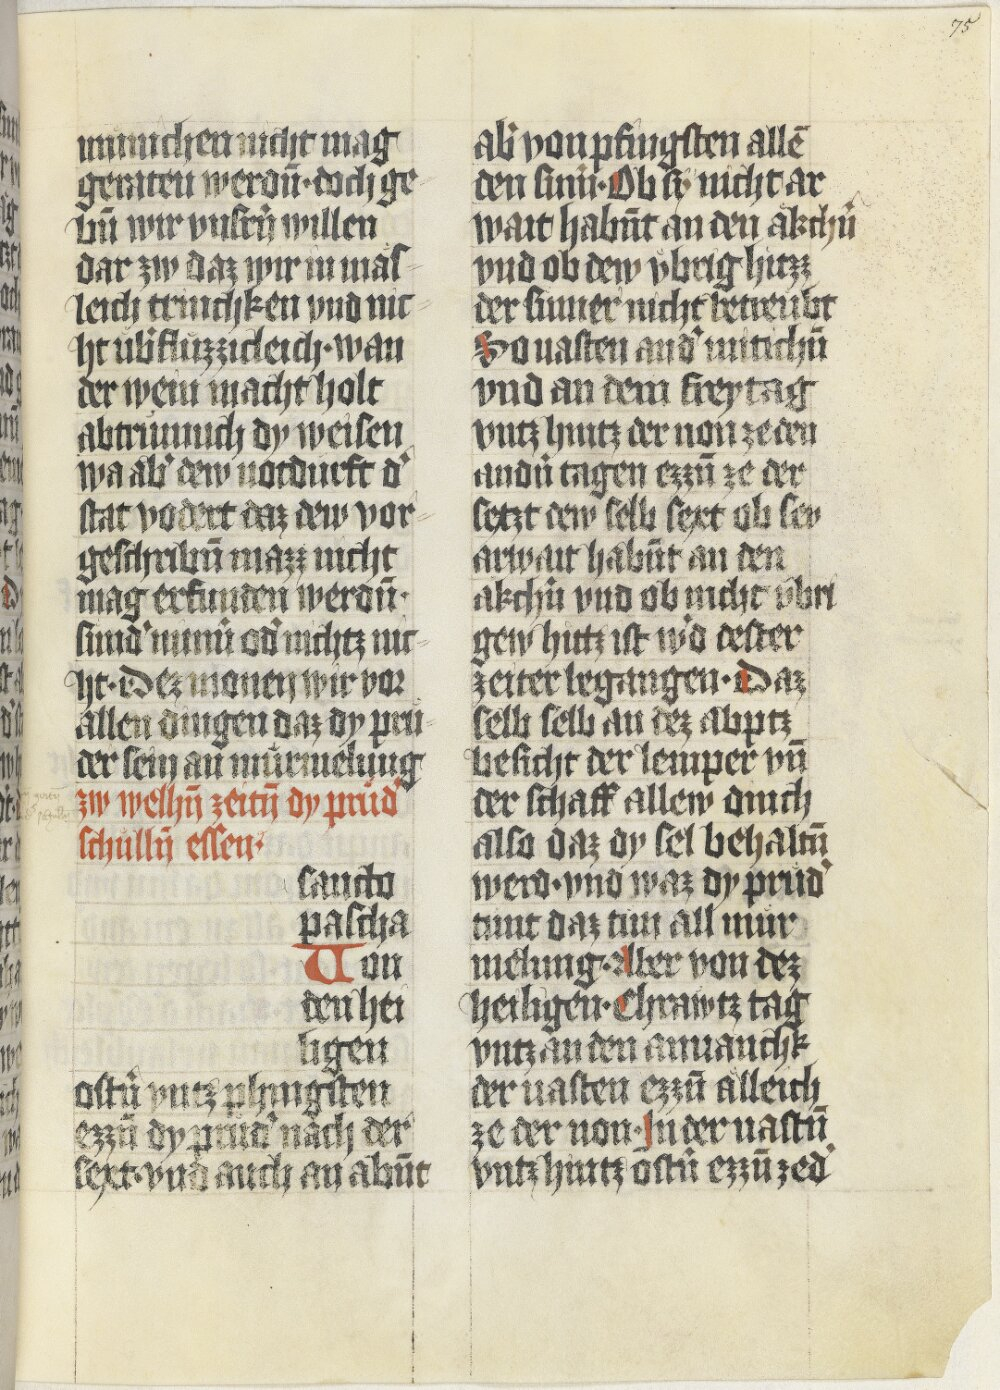 75
münichen nicht mag
geraten werdn̄·doch ge-
bn̄ wir vnsern̄ willen
dar zw daz wir in mäs-
leich trinchken vnd nit-
ht üb̾flüzzicleich·wan
der wein macht holt
abtrünnich dy weisen
wa ab̾ dew notdurft d̾
stat vodert daz dew vor-
geschribn̄ mazz nicht
mag erfunden werdn̄·
sund̾ minn̄ od̾ nichtz nit-
ht·Dez monen wir vor
allen dingen daz dy prü-
der sein an mürmelung
zw welhn̄ zeitn̄ dy prüd̾
schülln̄ essen·
sancto
pascha
Von
den hei
ligen
ostn̄ vntz phingsten
ezzn̄ dy prüd̾ nach der
sext·vnd auch an abn̄t
ab̾ von pfingsten allē
den sum̄·Ob sy nicht ar
wait habn̄t an den akchn̄
vnd ob dew vbrig hitzz
der summer nicht betreubt
So vasten an d̾ mitichn̄
vnd an dem freytag
vntz hintz der non ze den
andn̄ tagen ezzn̄ ze der
sext dew selb sext ob sev
arwait habn̄t an den
akchn̄ vnd ob nicht vbri
gew hitz ist w̾d dester
zeiter begangen·Daz
selb selb an dez abptz
besicht der temper vn̄
der schaff allew dinch
also daz dy sel behaltn̄
werd·vnd waz dy prüd̾
tunt daz tun all mür
melung·Aber von dez
heiligen·Chrawtz tag
vntz an den anuanchk
der uasten ezzn̄ alleich
ze der non·In der uastn̄
vntz hintz ostn̄ ezzn̄ ze d̾